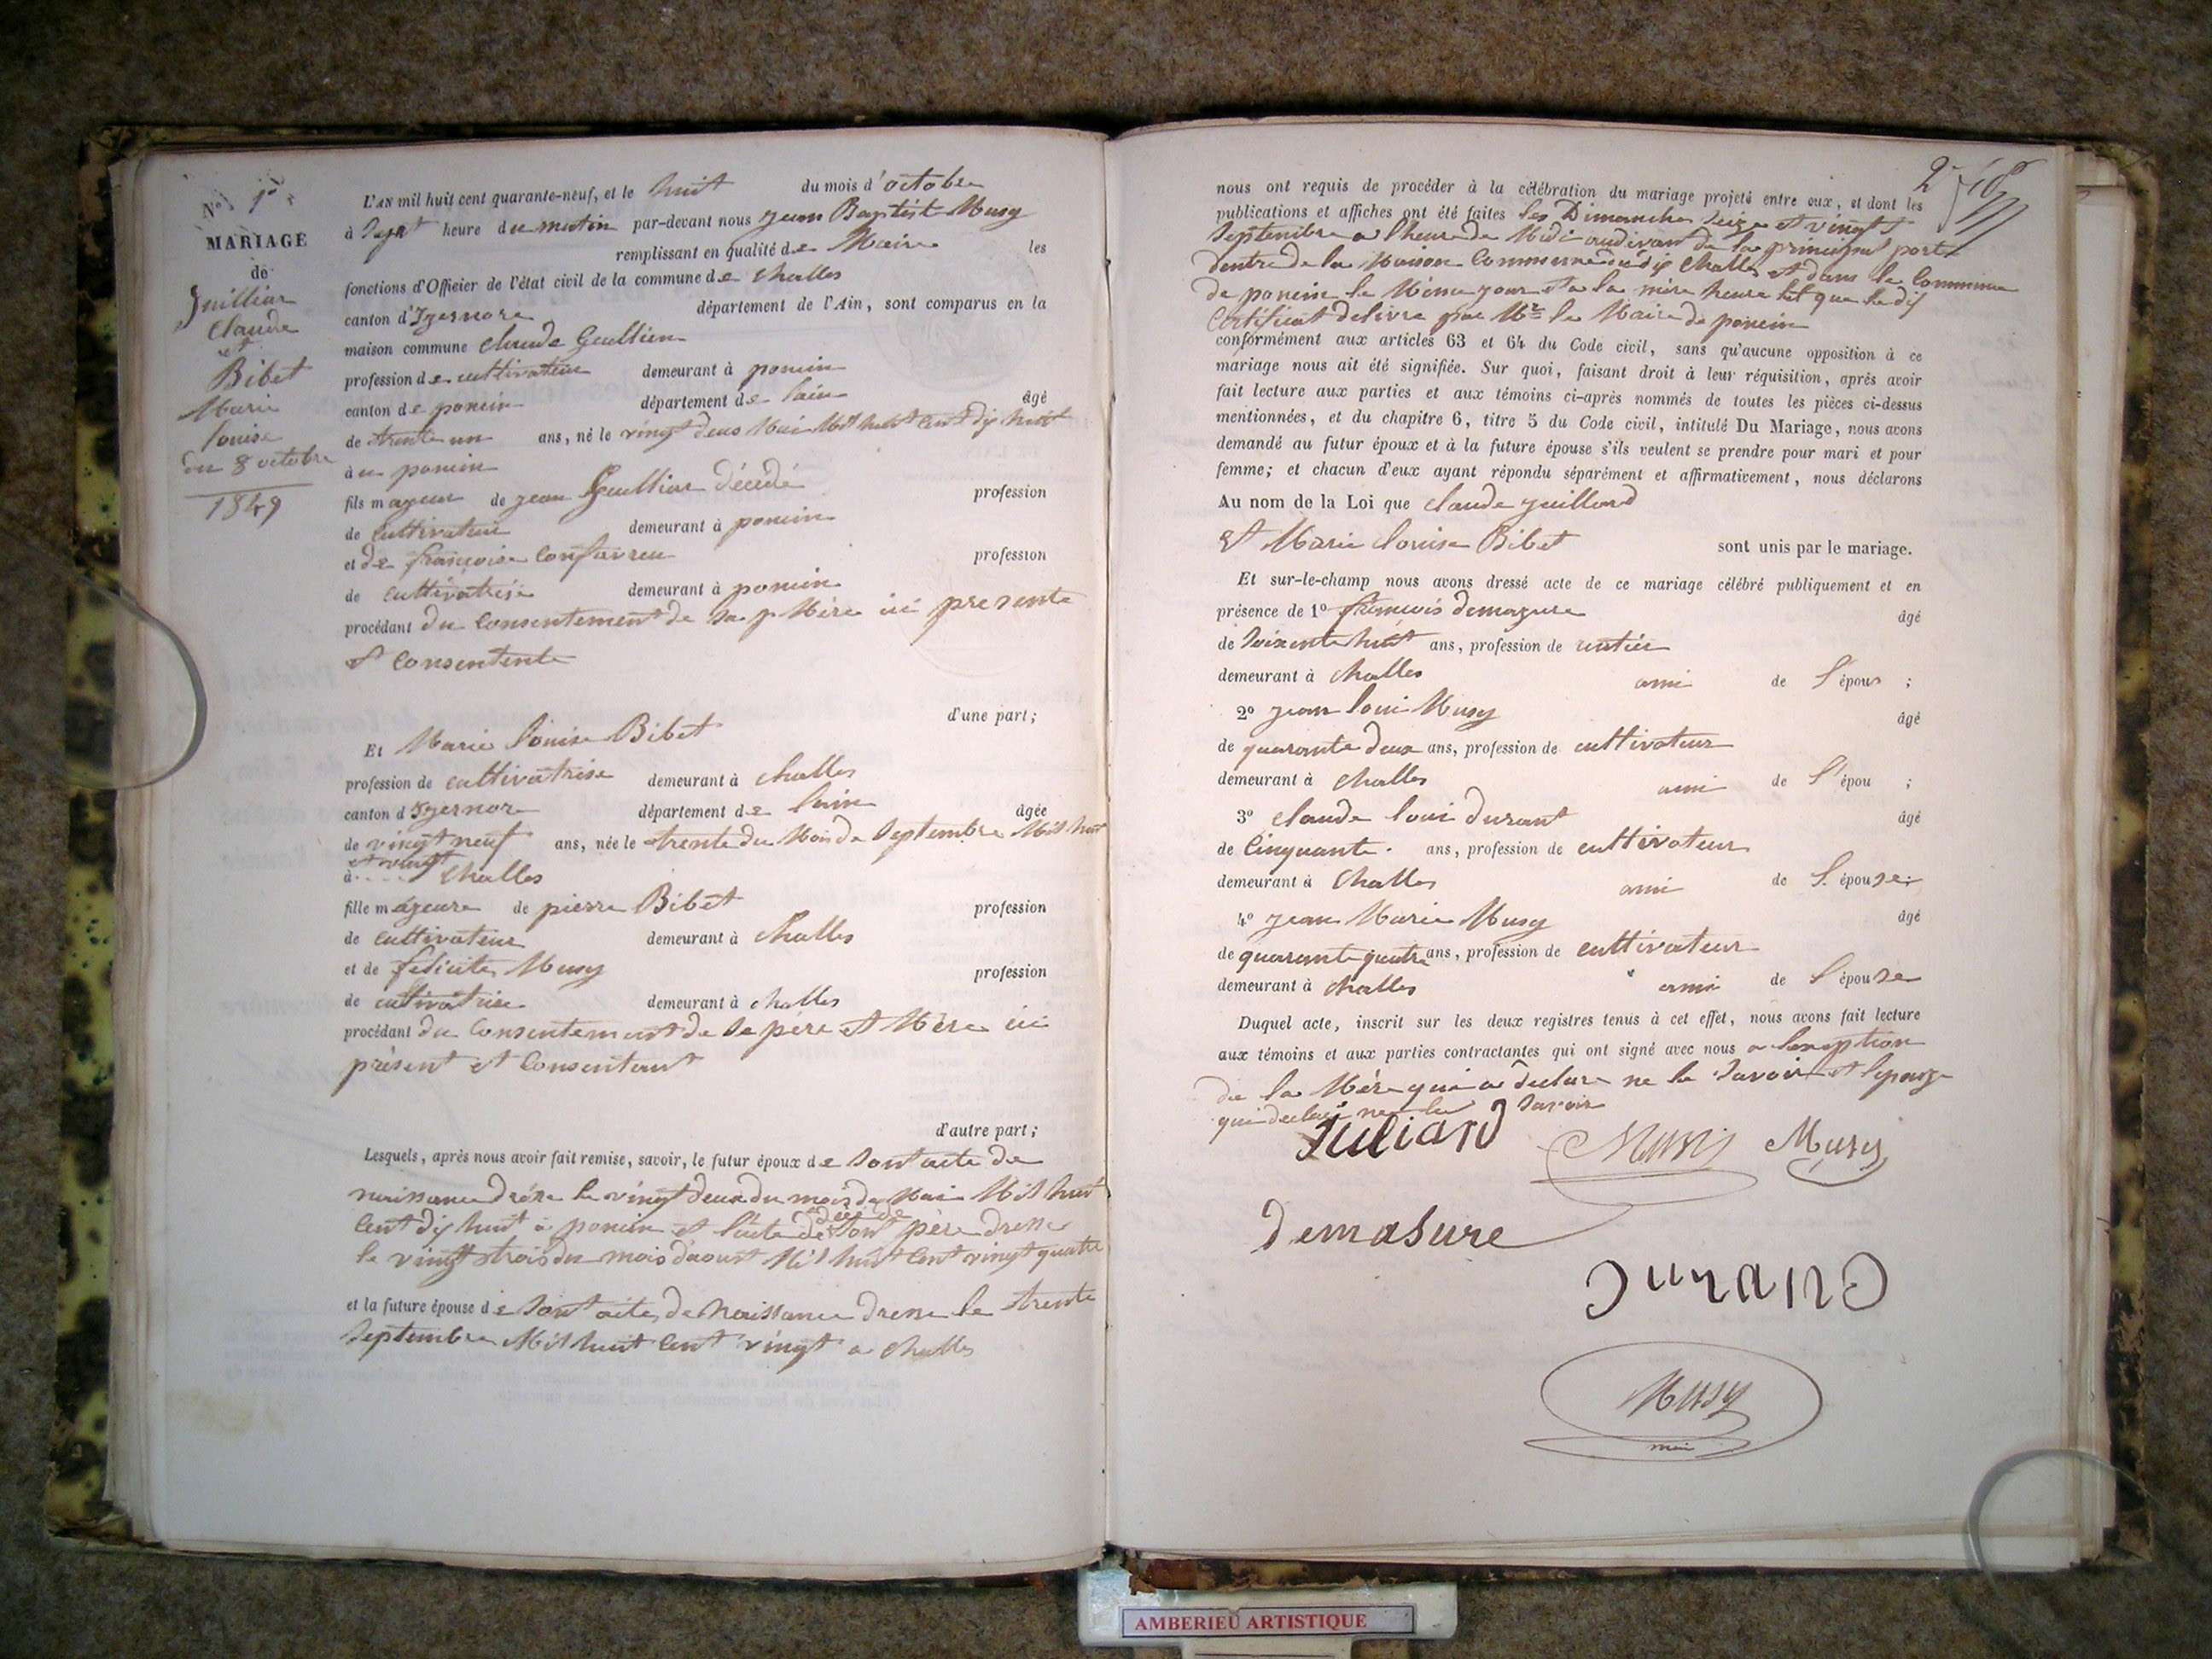 N° 1er
MARIAGE
de
Juillian
Claude
et
Bibet
Marie
louise
du 8 octobre
1849
L'AN mil huit cent quarante-neuf, et le huit du mois d'octobre
à Sept heure du matin par-devant nous jean Baptist Musy
remplissant en qualité de Maire les
fonctions d'Officier de l'état civil de la commune de challes
canton d'Izernore département de l'Ain, sont comparus en la
maison commune claude
profession de cultivateur demeurant à poncin
canton de poncin département de lain âgé
de trente un ans, né le vingt deus Mai Mil huit Cent dix huit
à poncin
fils mageur de jean décédé profession
de Cultivateur demeurant à poncin
et de françoise Confavreu profession
de cultivatrise demeurant à poncin
procédant du Consentement de sa Mère ici presente
et Consentente
d'une part;
Et Marie louise Bibet
profession de cultivatrise demeurant à challes
canton d'Izernore département de lain âgée
de vingt neuf ans, née le trente du Mois de Septembre Mil huit
et vingt
à challes
fille mageure de pierre Bibet profession
de cultivateur demeurant à challes
et de félicite Musy profession
de cultivatrise demeurant à challes
procédant du Consentement de Se père et Mère ici
présent et Consentant
d'autre part;
Lesquels, après nous avoir fait remise, savoir, le futur époux de Sont acte de
naissance le vingt deux du mois de Mai Mil huit
Cent dix huit à poncin et l'acte de Son père dresse
le vingt trois du mois daoust Mil huit Cent vingt quatre
et la future épouse de Sont acte de Naissance dresse le trente
Septembre Mil huit Cent vingt a challes
2
nous ont requis de procéder à la célébration du mariage projeté entre eux, et dont les
publications et affiches ont été faites les Dimanche Seize et vingt
Septembre a lheure de Midi audevant de la principal porte
dentre de la Maison Commune dudis Challes et dans la Commune
de poncin le Meme jour et a la même heure tel que le dis
Certificat delivre par Mr le Maire de poncin
conformément aux articles 63 et 64 du Code civil, sans qu'aucune opposition à ce
mariage nous ait été signifiée. Sur quoi, faisant droit à leur réquisition, après avoir
fait lecture aux parties et aux témoins ci-après nommés de toutes les pièces ci-dessus
mentionnées, et du chapitre 6, titre 5 du Code civil, intitulé Du Mariage, nous avons
demandé au futur époux et à la future épouse s'ils veulent se prendre pour mari et pour
femme; et chacun d'eux ayant répondu séparément et affirmativement, nous déclarons
Au nom de la Loi que claude juilliard
Et Marie louise Bibet sont unis par le mariage.
Et sur-le-champ nous avons dressé acte de ce mariage célébré publiquement et en
présence de 1° françois demazure âgé
de Soixente huit ans, profession de rentier
demeurant à challes ami de L'épous ;
2° jean loui Musy âgé
de quarante deux ans, profession de cultivateur
demeurant à challes ami de L'épou ;
3° claude loui durant âgé
de Cinquante ans, profession de cultivateur
demeurant à challes ami de L'épouse;
4° jean Marie Musy âgé
de quarente quatre ans, profession de cultivateur
demeurant à challes ami de L'épouse
Duquel acte, inscrit sur les deux registres tenus à cet effet, nous avons fait lecture
aux témoins et aux parties contractantes qui ont signé avec nous a lexeption
de la Mère qui a declare ne le Savoir et lepouze
qui declare ne le Savoir
Juliard Musy Musy
demasure
Durand
Musy
AMBERIEU ARTISTIQUE